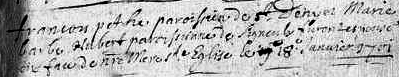 françois pothe paroissien de st Denyer Marie
barbe Hubert paroissienne de furont espousé
en face de nre Mere ste Eglise le 18 Janvier 1701